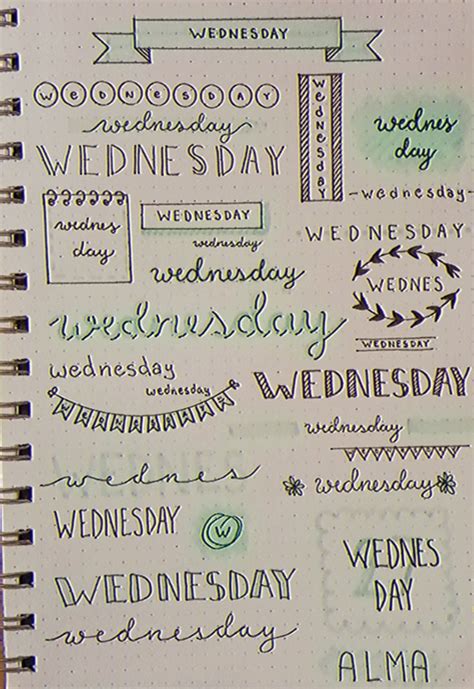 WEDNESDAY
WEDNESDAY
wednesday
wednesday
WEDNESDAY
wednes
day
-wednesday-
wednes
day
WEDNESDAY
wednesday
WEDNESDAY
wednesday
WEDNES
wednesday
WEDNESDAY
wednesday
wednesday
WEDNESDAY
WEDNESDAY
wednesday
wednes
WEDNES
wednesday
WEDNESDAY
W
WEDNES
DAY
WEDNESDAY
wednesday
ALMA